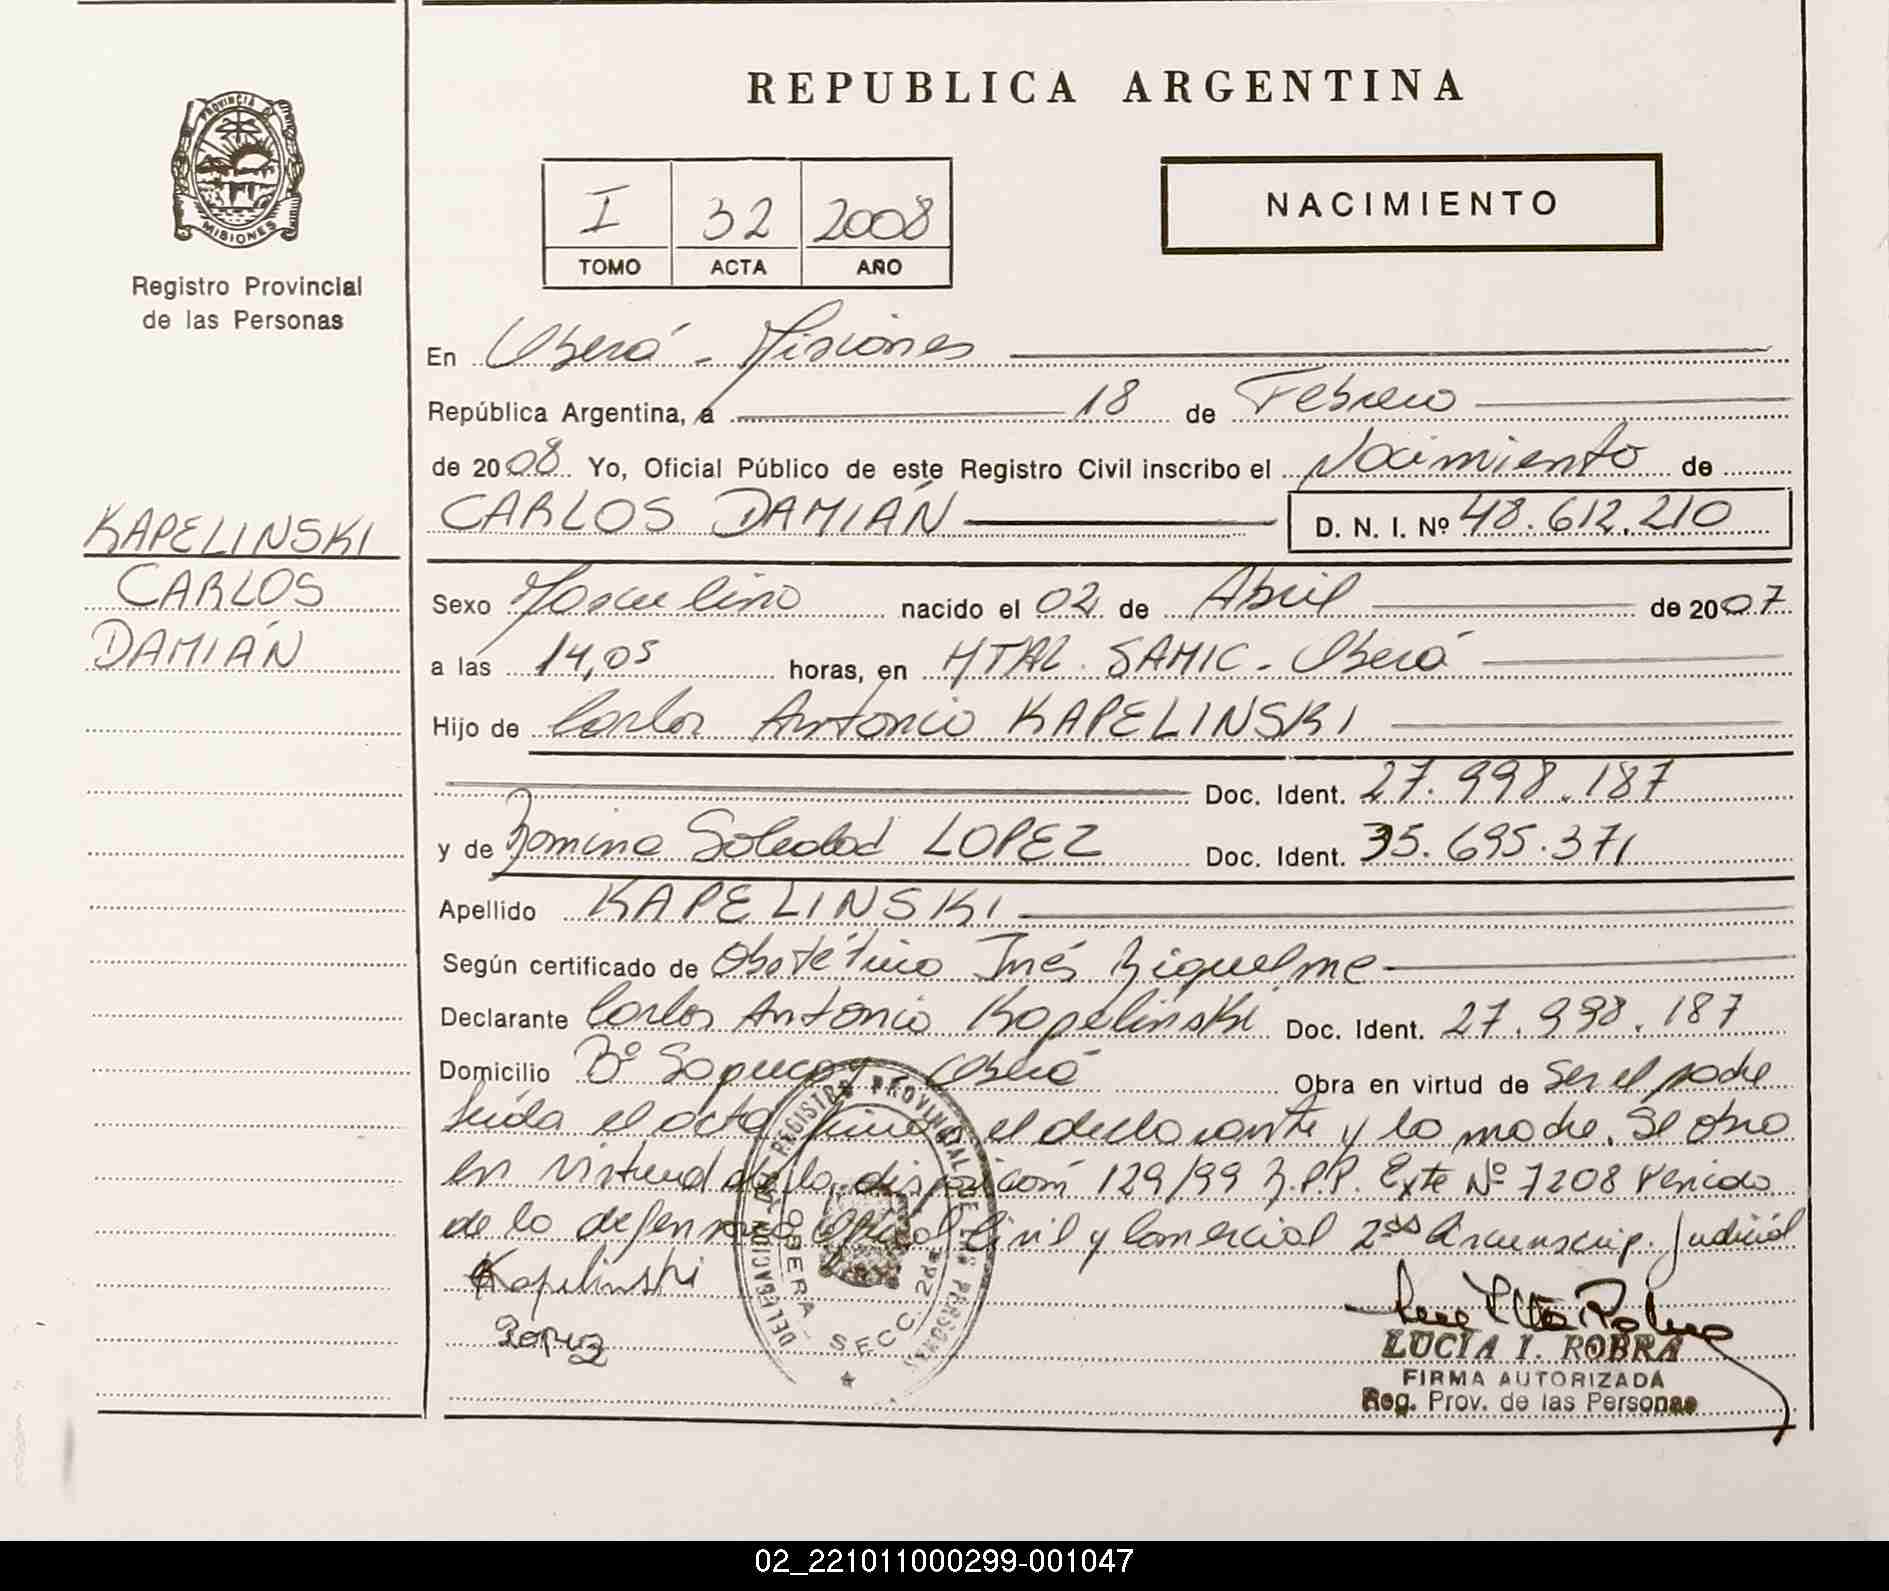 REPUBLICA ARGENTINA
PROVINCIA DE
MISIONES
Registro Provincial
de las Personas
I 32 2008
TOMO ACTA AÑO
NACIMIENTO
En Oberá - Misiones
República Argentina, a 18 de Febrero
de 2008 Yo, Oficial Público de este Registro Civil inscribo el Nacimiento de
CARLOS DAMIÁN D. N. I. Nº 48.612.210
KAPELINSKI
CARLOS
DAMIÁN
Sexo Masculino nacido el 02 de Abril de 2007
a las 14,05 horas, en HTAL. SAMIC - Oberá
Hijo de Carlos Antonio KAPELINSKI
Doc. Ident. 27.998.187
y de Romina Soledad LOPEZ Doc. Ident. 35.695.371
Apellido KAPELINSKI
Según certificado de Obstétrica Inés Riquelme
Declarante Carlos Antonio Kapelinski Doc. Ident. 27.998.187
Domicilio Bº Sapucay Oberá Obra en virtud de Ser el padre
Leída el acta firman el declarante y la madre. Se obra
en virtud de la disposición 129/99 R.P.P. Exte Nº 7208 Venido
de la defensoría Oficial Civil y Comercial 2da Circunscrip. Judicial
Kapelinski
DELEGACION DE REGISTRO PROVINCIAL DE LAS PERSONAS
OBERA SECC. 2da
LUCIA I. ROBRA
FIRMA AUTORIZADA
Reg. Prov. de las Personas
02_221011000299-001047